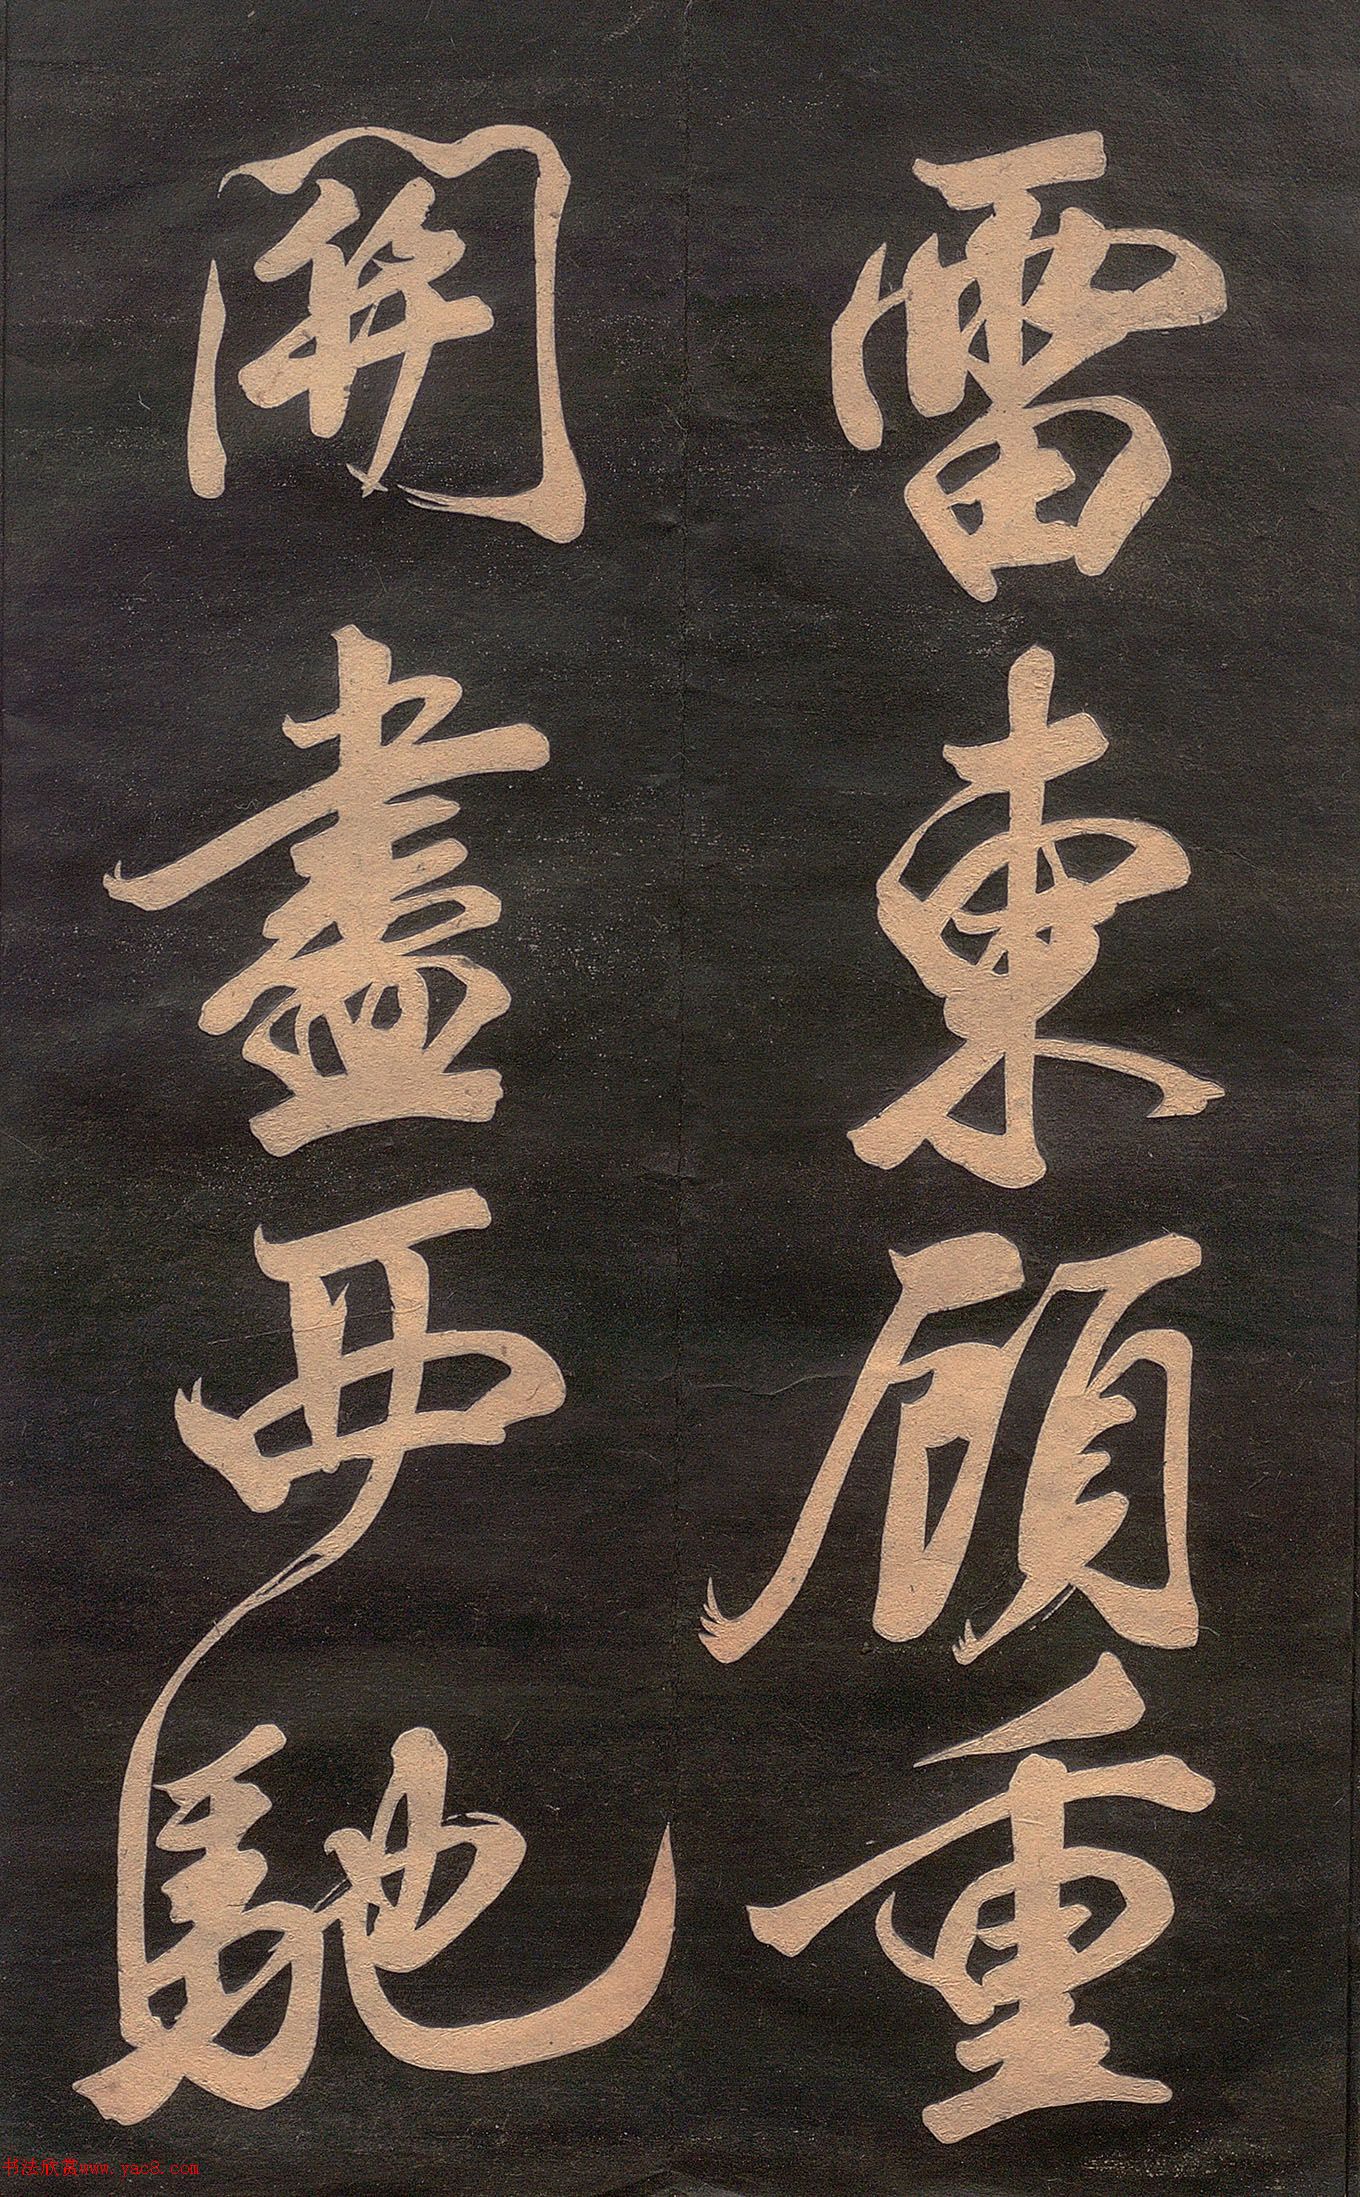 雷東顧重
開盡再馳
书法欣赏www.yac8.com